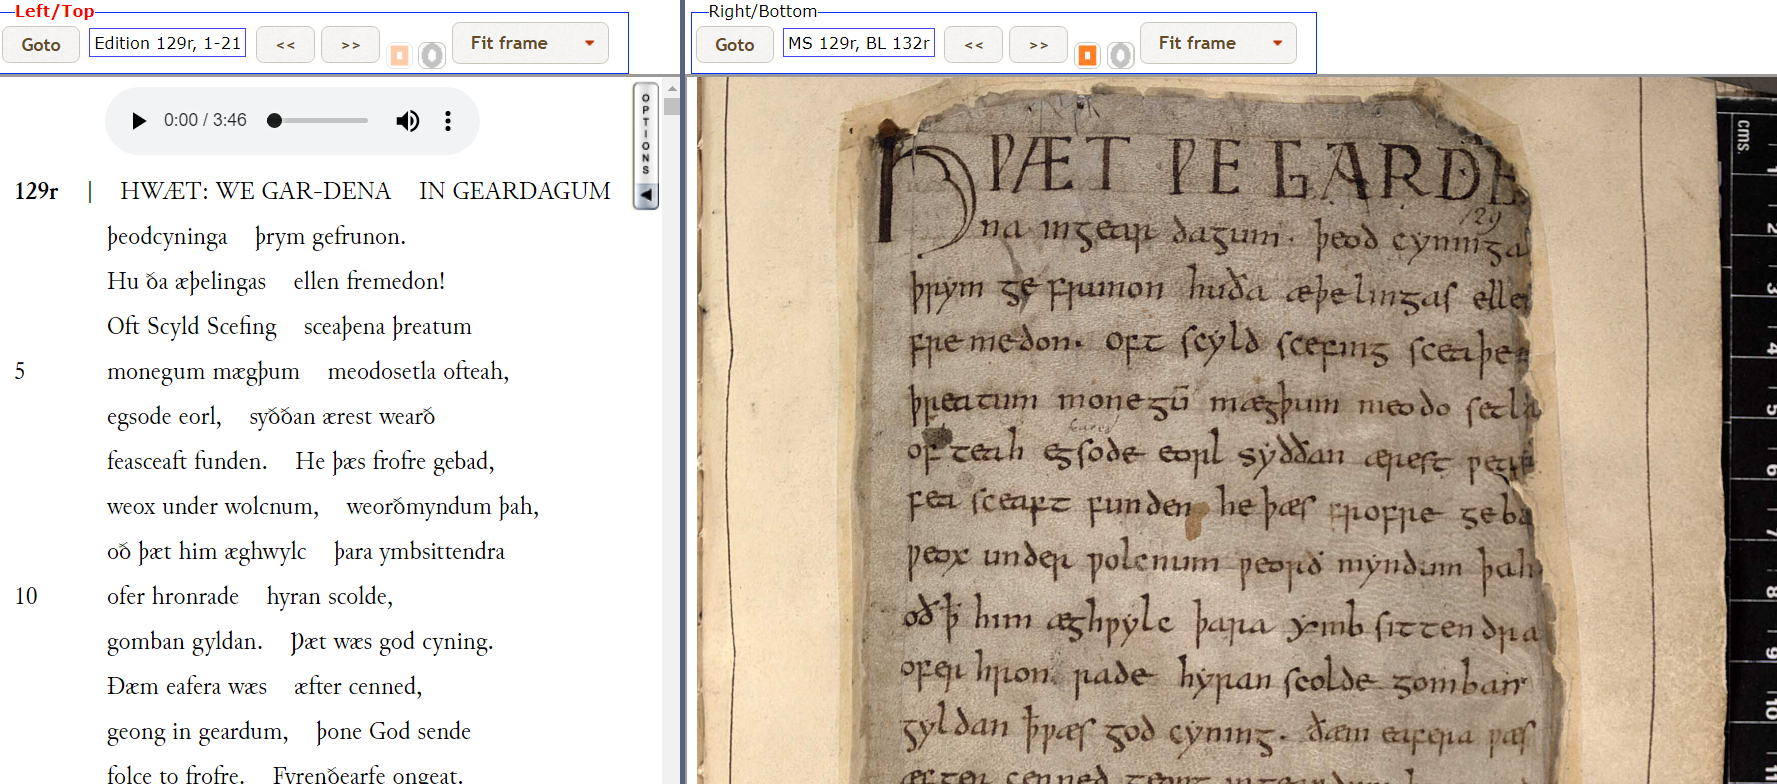 Left/Top
Goto Edition 129r, 1-21 << >> Fit frame
0:00 / 3:46
OPTIONS
129r | HWÆT: WE GAR-DENA IN GEARDAGUM
þeodcyninga þrym gefrunon.
Hu ða æþelingas ellen fremedon!
Oft Scyld Scefing sceaþena þreatum
5 monegum mægþum meodosetla ofteah,
egsode eorl, syððan ærest wearð
feasceaft funden. He þæs frofre gebad,
weox under wolcnum, weorðmyndum þah,
oð þæt him æghwylc þara ymbsittendra
10 ofer hronrade hyran scolde,
gomban gyldan. Þæt wæs god cyning.
Ðæm eafera wæs æfter cenned,
geong in geardum, þone God sende
folce to frofre. Fyrenðearfe ongeat.
Right/Bottom
Goto MS 129r, BL 132r << >> Fit frame
HǷÆT ǷE GARDE
129
na ingear dagum. þeod cyninga
þrym ge frunon huða æþelingas elle
fremedon. oft scyld scefing sceaþe
þreatum monegū mægþum meodo setla
of teah egsode eorl syððan ærest ƿear
fea sceaft funden he þæs frofre geba
ƿeox under ƿolcnum ƿeorð myndum þah
oð ꝥ him æghƿylc þara ymb sittendra
ofer hron rade hyran scolde gomban
gyldan ꝥ ƿæs god cyning. ðæm eafera ƿæs
æfter cenned
cms.
1
2
3
4
5
6
7
8
9
10